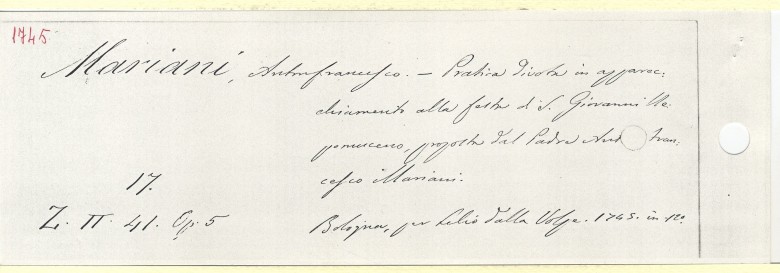 1745
Mariani, Antonfrancesco. — Pratica divota in apparec:
chiamento alla festa di S. Giovanni Ne:
pomuceno, proposta dal Padre Anto fran:
cesco Mariani.
17.
Z. II. 41. Op. 5
Bologna, per Lelio dalla Volpe. 1745. in 12º.